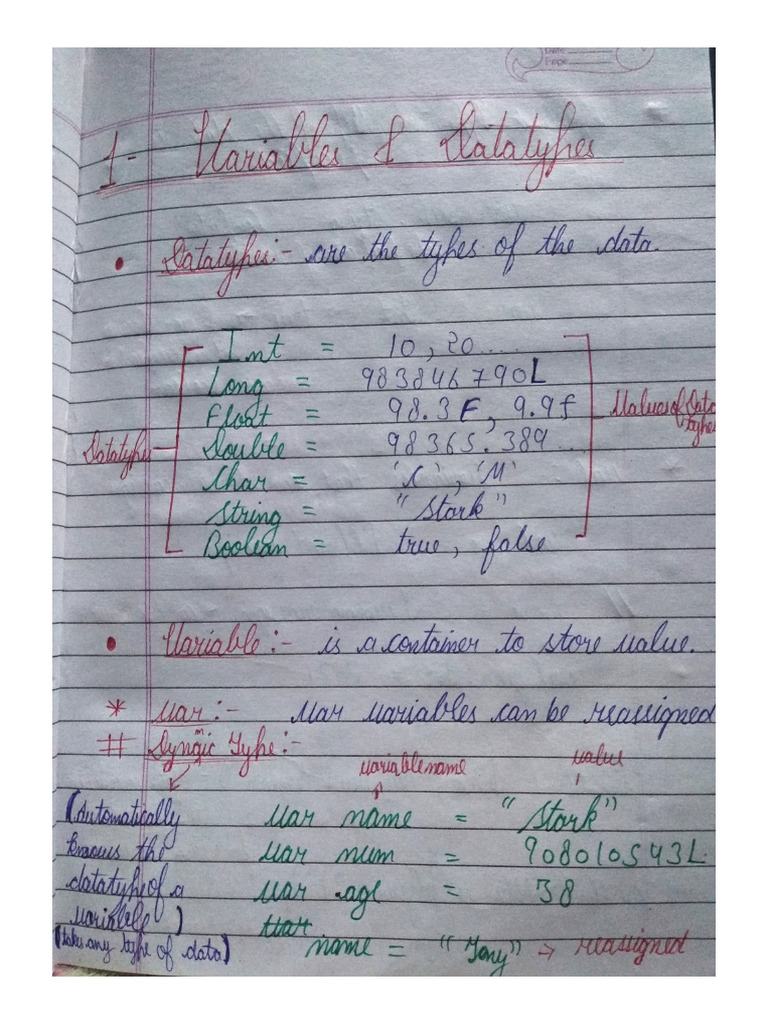 1- Variables & Datatypes
• Datatypes:- are the types of the data.
Int = 10, 20....
Long = 983846790L
Float = 98.3F, 9.9f
Double = 98365.389...
Char = 'C', 'M'
String = "Stark"
Boolean = true, false
Datatype
Values of Data types
• Variable:- is a container to store value.
* Var:- Var variables can be reassigned
# Dynmic Type:-
variable name value
(Automatically knows the datatype of a variable)
(takes any type of data)
var name = "Stark"
var num = 908010543L
var age = 38
var
name = "Tony" → reassigned